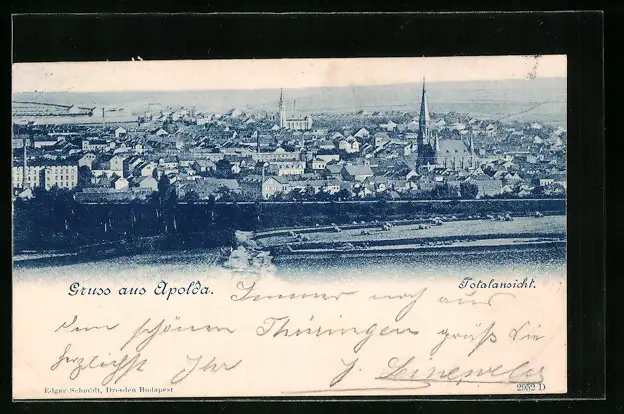 Gruss aus Apolda.
Totalansicht.
Immer noch aus
dem schönen Thüringen grüßt Sie
herzlichst Ihr J.
Edgar Schmidt, Dresden Budapest
2952 D